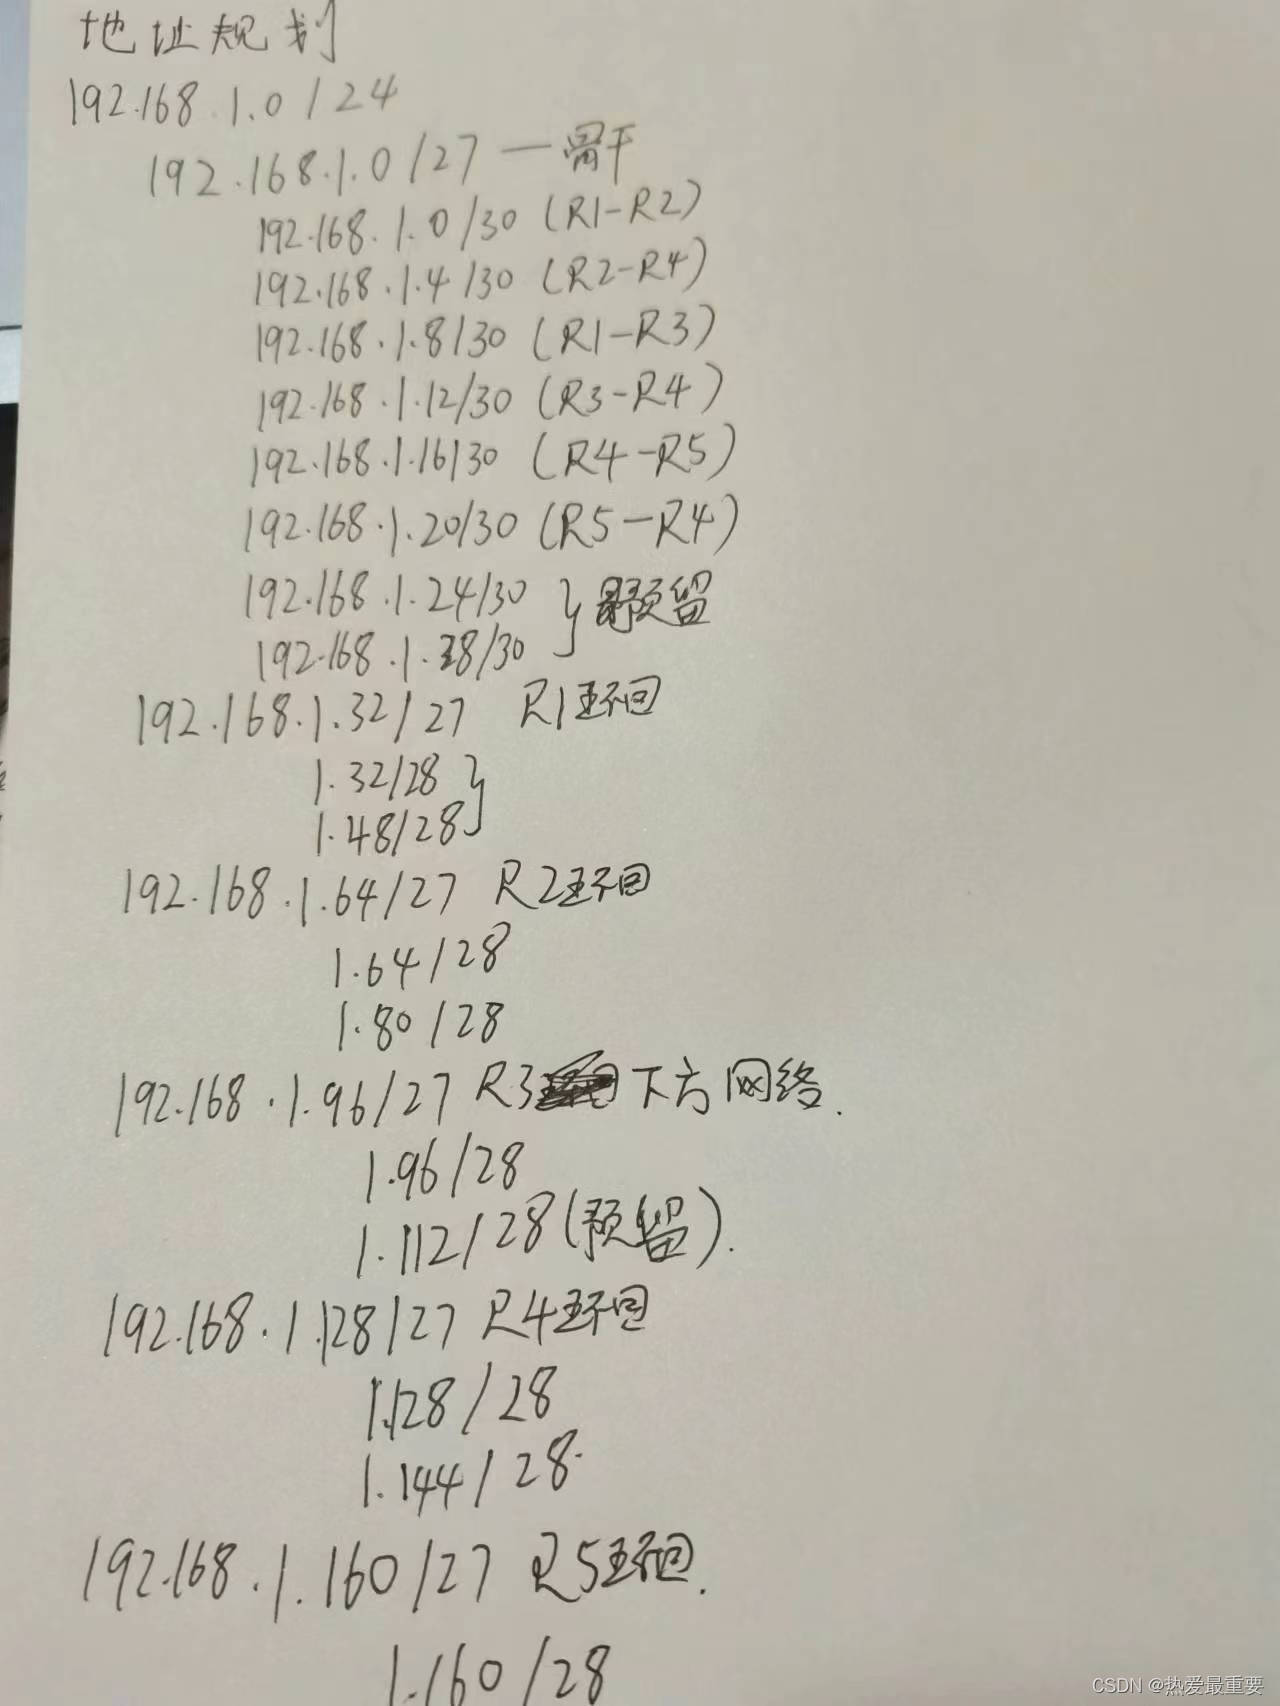 地址规划
192.168.1.0/24
192.168.1.0/27 — 骨干
192.168.1.0/30 (R1-R2)
192.168.1.4/30 (R2-R4)
192.168.1.8/30 (R1-R3)
192.168.1.12/30 (R3-R4)
192.168.1.16/30 (R4-R5)
192.168.1.20/30 (R5-R4)
192.168.1.24/30 } 预留
192.168.1.28/30
192.168.1.32/27 R1环回
1.32/28 }
1.48/28
192.168.1.64/27 R2环回
1.64/28
1.80/28
192.168.1.96/27 R3 下方网络.
1.96/28
1.112/28(预留).
192.168.1.128/27 R4环回
1.128/28
1.144/28.
192.168.1.160/27 R5环回.
1.160/28
CSDN @热爱最重要